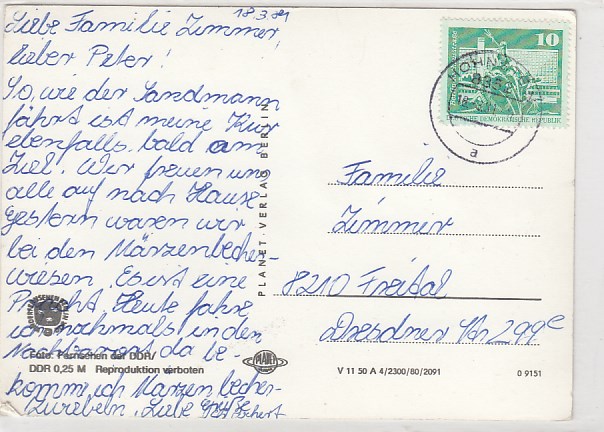 18.3.81
Liebe Familie Zimmer,
lieber Peter!
So, wie der Sandmann
fährt ist meine Kur
ebenfalls bald am
Ziel. Wir freuen uns
alle auf nach Hause
gestern waren wir
bei den Märzenbecher-
wiesen. Es ist eine
Pracht. Heute fahre
ich nochmals in den
da be-
komm ich Märzenbecher-
Liebe Grüße
Foto: Fernsehen der DDR/
DDR 0,25 M Reproduktion verboten
PLANET-VERLAG BERLIN
PLANET
V 11 50 A 4/2300/80/2091
0 9151
10
DEUTSCHE DEMOKRATISCHE REPUBLIK
HOHN
a
Familie
Zimmer
8210 Freital
Dresdner Str 299c